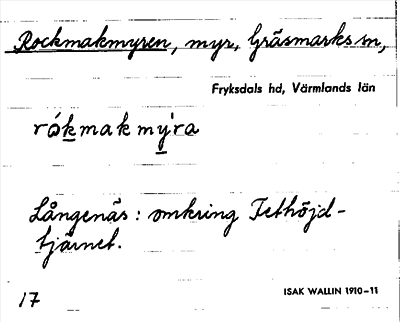 Rockmakmyren, myr, Gräsmarks sn,
Fryksdals hd, Värmlands län
rókmakmýra
Långenäs: omkring Tethöjd-
tjärnet.
17
ISAK WALLIN 1910–11